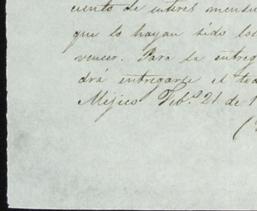 ciento de interes mensu
que lo hayan sido los
vencer. Para la entreg
drá entregarse el to
Méjico Feb.º 21 de 1
(